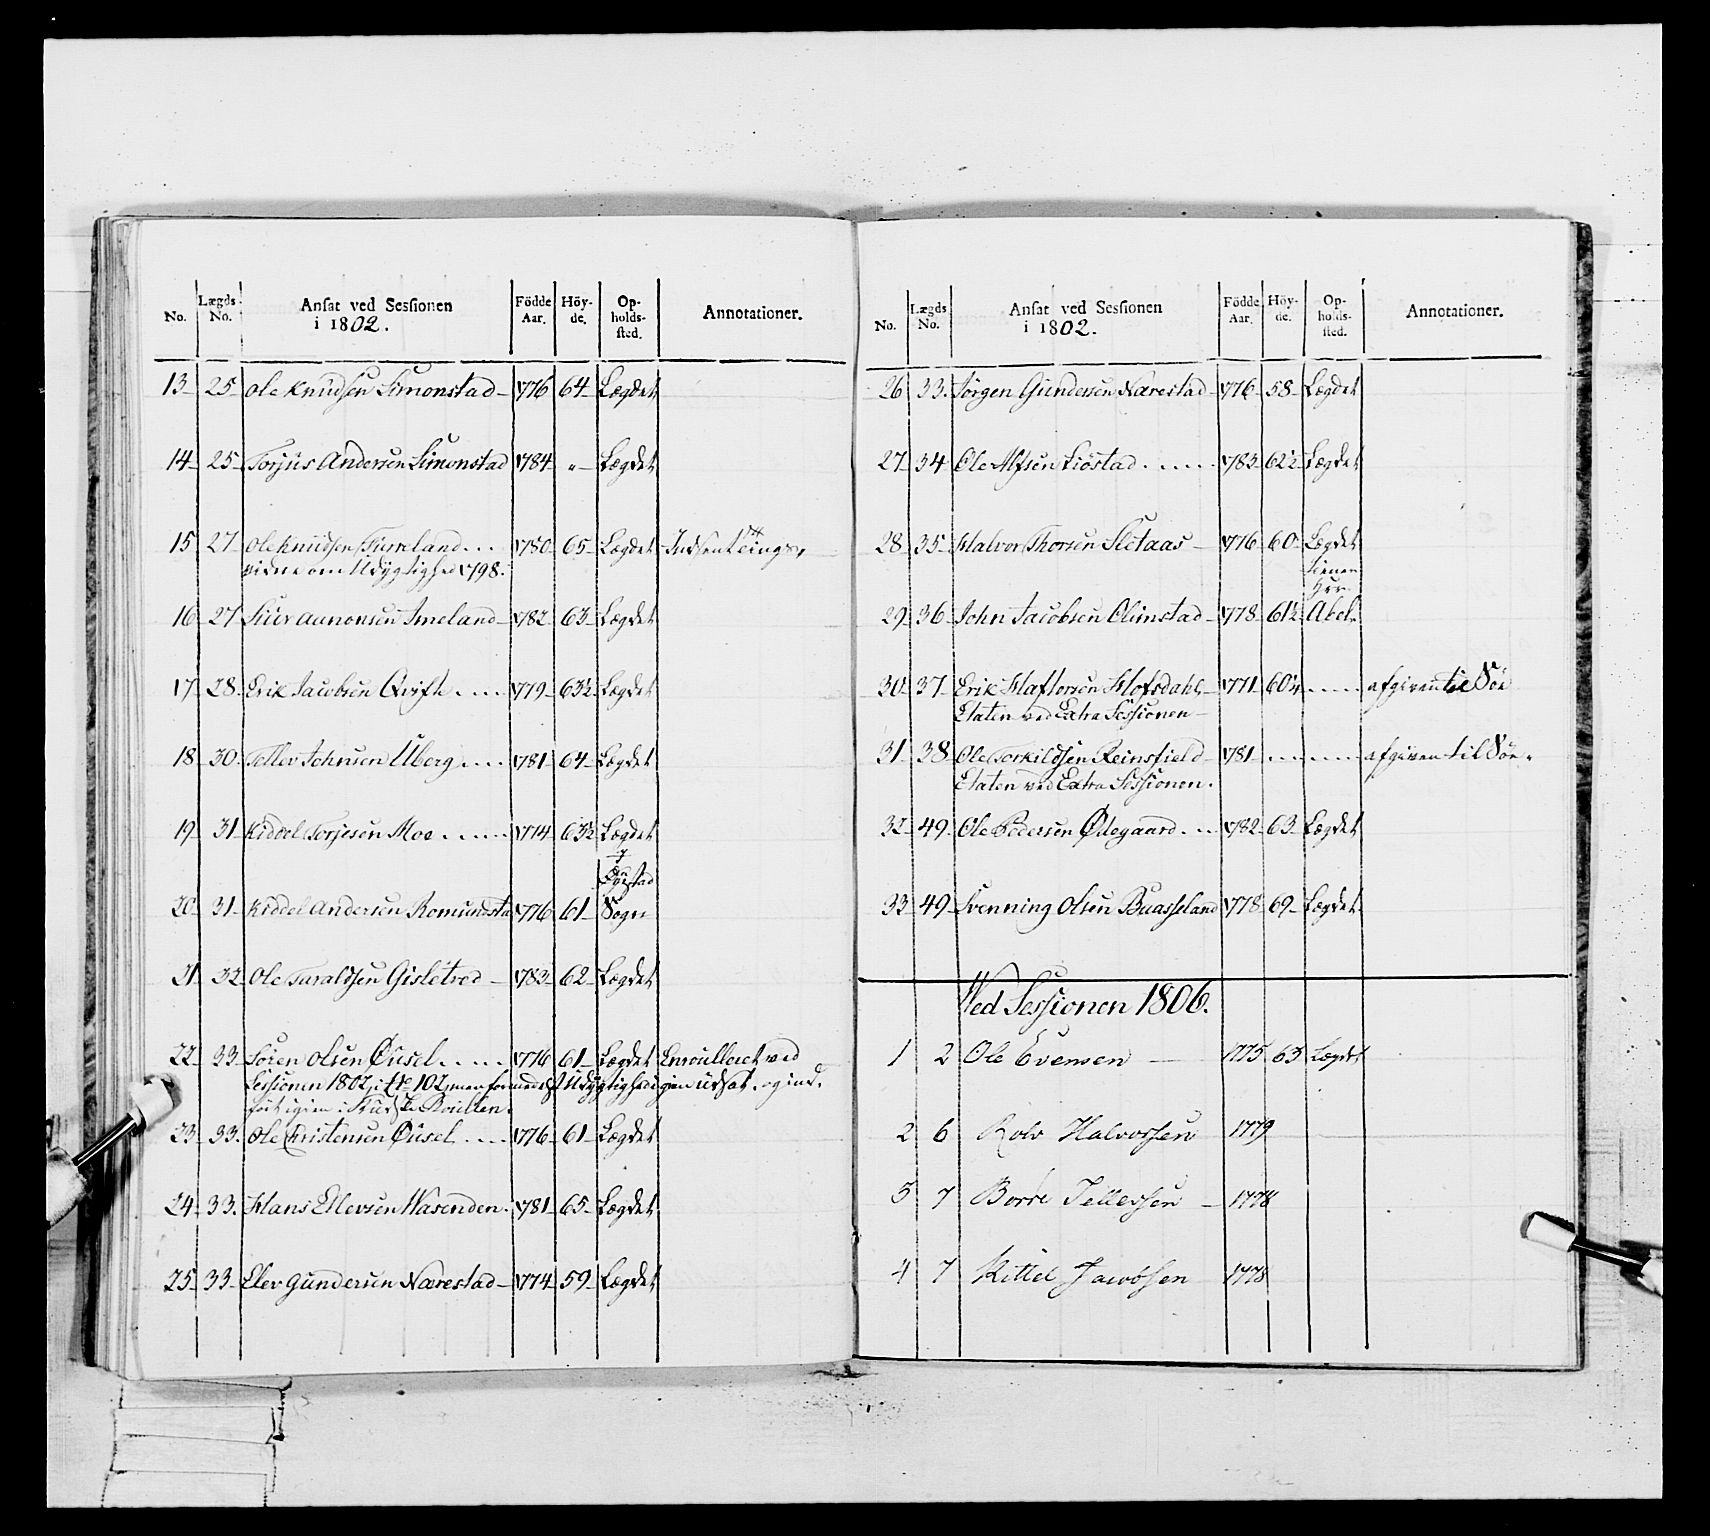 No. Lægds No. Ansat ved Sessionen i 1802. Födde Aar. Höy-de. Op-holds-sted. Annotationer.
13 25 Ole Knudsen Simonstad 1776 64 Lægdet
14 25 Torjus Andersen Simonstad 1784 " Lægdet
15 27 Ole Knudsen 1780 65 Lægdet
om Udygtighed 1798.
16 27 Siur Aanonsen Imeland 1782 63 Lægdet
17 28 Erik Jacobsen Qvifte 1779 63½ Lægdet
18 30 Tellev Johnsen Uberg 1781 64 Lægdet
19 31 Kiddel Torjesen Moe 1774 63½ Lægdet
20 31 Kiddel Andersen Romundsta 1776 61 Sogn
21 32 Ole Taraldsen Gisletved 1783 62 Lægdet
22 33 Sören Olsen Øusel 1776 61 Lægdet Enroulleret ved
Sessionen 1802 i No 102, men formedelst Udygtighed igien udsat, og ind-
fört igien i
23 33 Ole Christensen Øusel 1776 61 Lægdet
24 33 Hans Ellevsen Wasenden 1781 65 Lægdet
25 33 Elev Gundersen Narestad 1774 59 Lægdet
No. Lægds No. Ansat ved Sessionen i 1802. Födde Aar. Höy-de. Op-holds-sted. Annotationer.
26 33 Jörgen Gundersen Narestad 1776 58 Lægdet
27 34 Ole Alfsen Liöstad 1783 62½ Lægdet
28 35 Halvor Thorsen Sletaas 1776 60 Lægdet
29 36 John Jacobsen Olimstad 1778 61½
30 37 Erik Haftorsen Hofsdahl 1771 60¼ afgiven til Söe
Etaten ved Extra Sessionen
31 38 Ole Torkildsen Reinsfield 1781 afgiven til Söe-
Etaten ved Extra Sessionen.
32 49 Ole Pedersen Ødegaard 1782 63 Lægdet
33 49 Svenning Olsen Buasseland 1778 69 Lægdet
Ved Sessionen 1806.
1 2 Ole Evensen 1775 63 Lægdet
2 6 Rolv Halvorsen 1779
3 7 Börre Tellefsen 1778
4 7 Kittel Jacobsen 1778